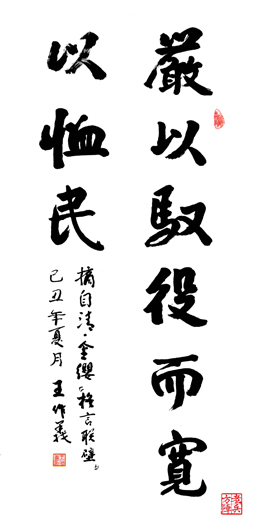 嚴以馭役而寬
以恤民
摘自清·金纓《格言聯璧》
己丑年夏月 王作義